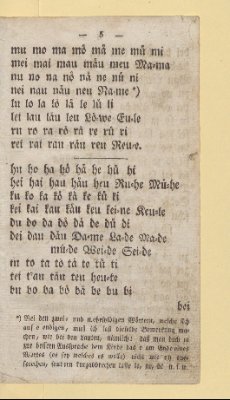 — 5 —
mu mo ma mö mä me mü mi
mei mai mau mäu meu Ma-ma
nu no na nö nä ne nü ni
nei nau näu neu Na-me *)
lu lo la lö lä le lü li
lei lau läu leu Lö-we Eu-le
ru ro ra rö rä re rü ri
rei rai rau räu reu Reu-e.
hu ho ha hö hä he hü hi
hei hai hau häu heu Ru-he Mü-he
ku ko ka kö kä ke kü ki
kei kai kau käu keu kei-ne Keu-le
du do da dö dä de dü di
dei dau däu Da-me La-de Ma-de
mü-de Wei-de Sei-de
tu to ta tö tä te tü ti
tei tau räu teu heu-te
bu bo ba bö bä be bü bi
bei
*) Bei den zwei- und mehrsilbigen Wörtern, welche sich
auf e endigen, muß ich dieselbe Bemerkung ma-
chen, wie bei den Lauten, nämlich: daß man doch ja
zur bessern Aussprache dem Kinde das e am Ende eines
Wortes (es sey welches es wolle) nicht wie eh aus-
sprechen, sondern kurzgebrochen